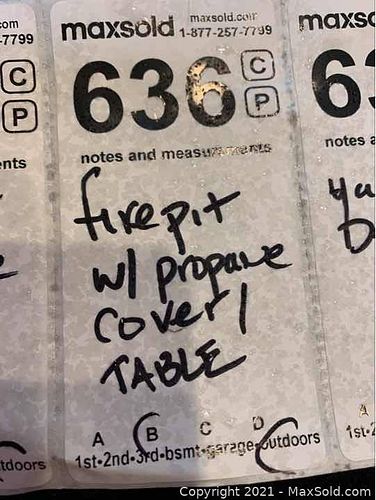 com
-7799
C
P
ents
tdoors
maxsold
maxsold.com
1-877-257-7799
636
C
P
notes and measurements
firepit
w/ propane
cover/
TABLE
A B C D
1st-2nd-3rd-bsmt-garage-outdoors
maxso
63
notes a
A
1st-2
Copyright © 2021 - MaxSold.com